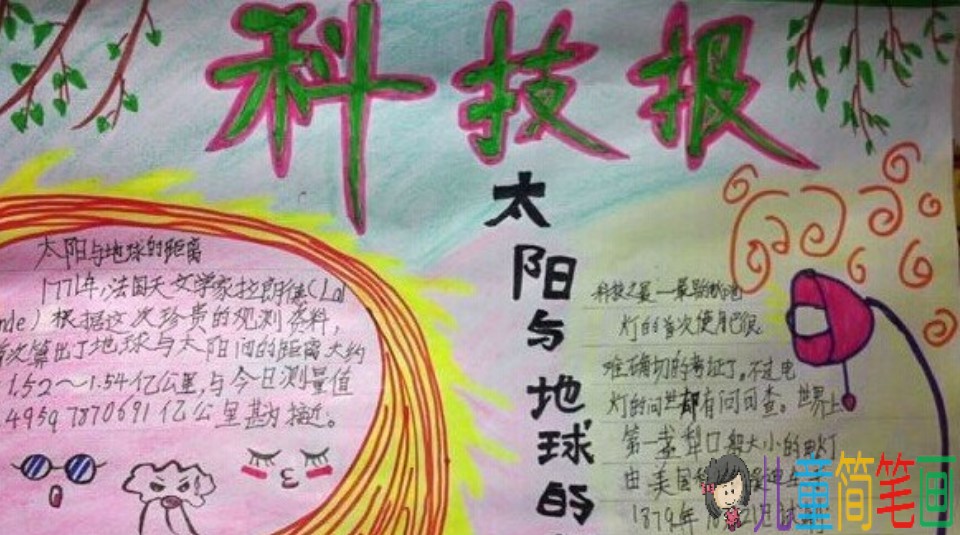 科技报
太阳与地球的
太阳与地球的距离
1771年,法国天文学家拉朗德(Lal
nde)根据这次珍贵的观测资料,
首次算出了地球与太阳间的距离大约
1.52～1.54亿公里,与今日测量值
49597870691亿公里甚为接近。
科技之最一最早的电
灯的首次使用已很
难准确切的考证了。不过电
灯的问世都有问可查。世界上
第一 和大小的电灯
由美国
1879年 21日
儿童简笔画